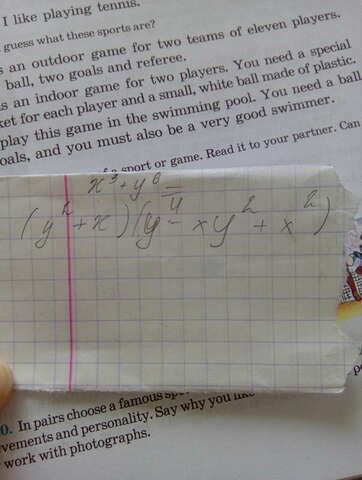 I like playing tennis.
guess what these sports are?
s an outdoor game for two teams of eleven players.
ball, two goals and referee.
s an indoor game for two players. You need a special
ket for each player and a small, white ball made of plastic.
play this game in the swimming pool. You need a ball
oals, and you must also be a very good swimmer.
a sport or game. Read it to your partner. Can
x³+y⁶=
(y²+x)(y⁴-xy²+x²)
0. In pairs choose a famous
vements and personality. Say why you like
work with photographs.